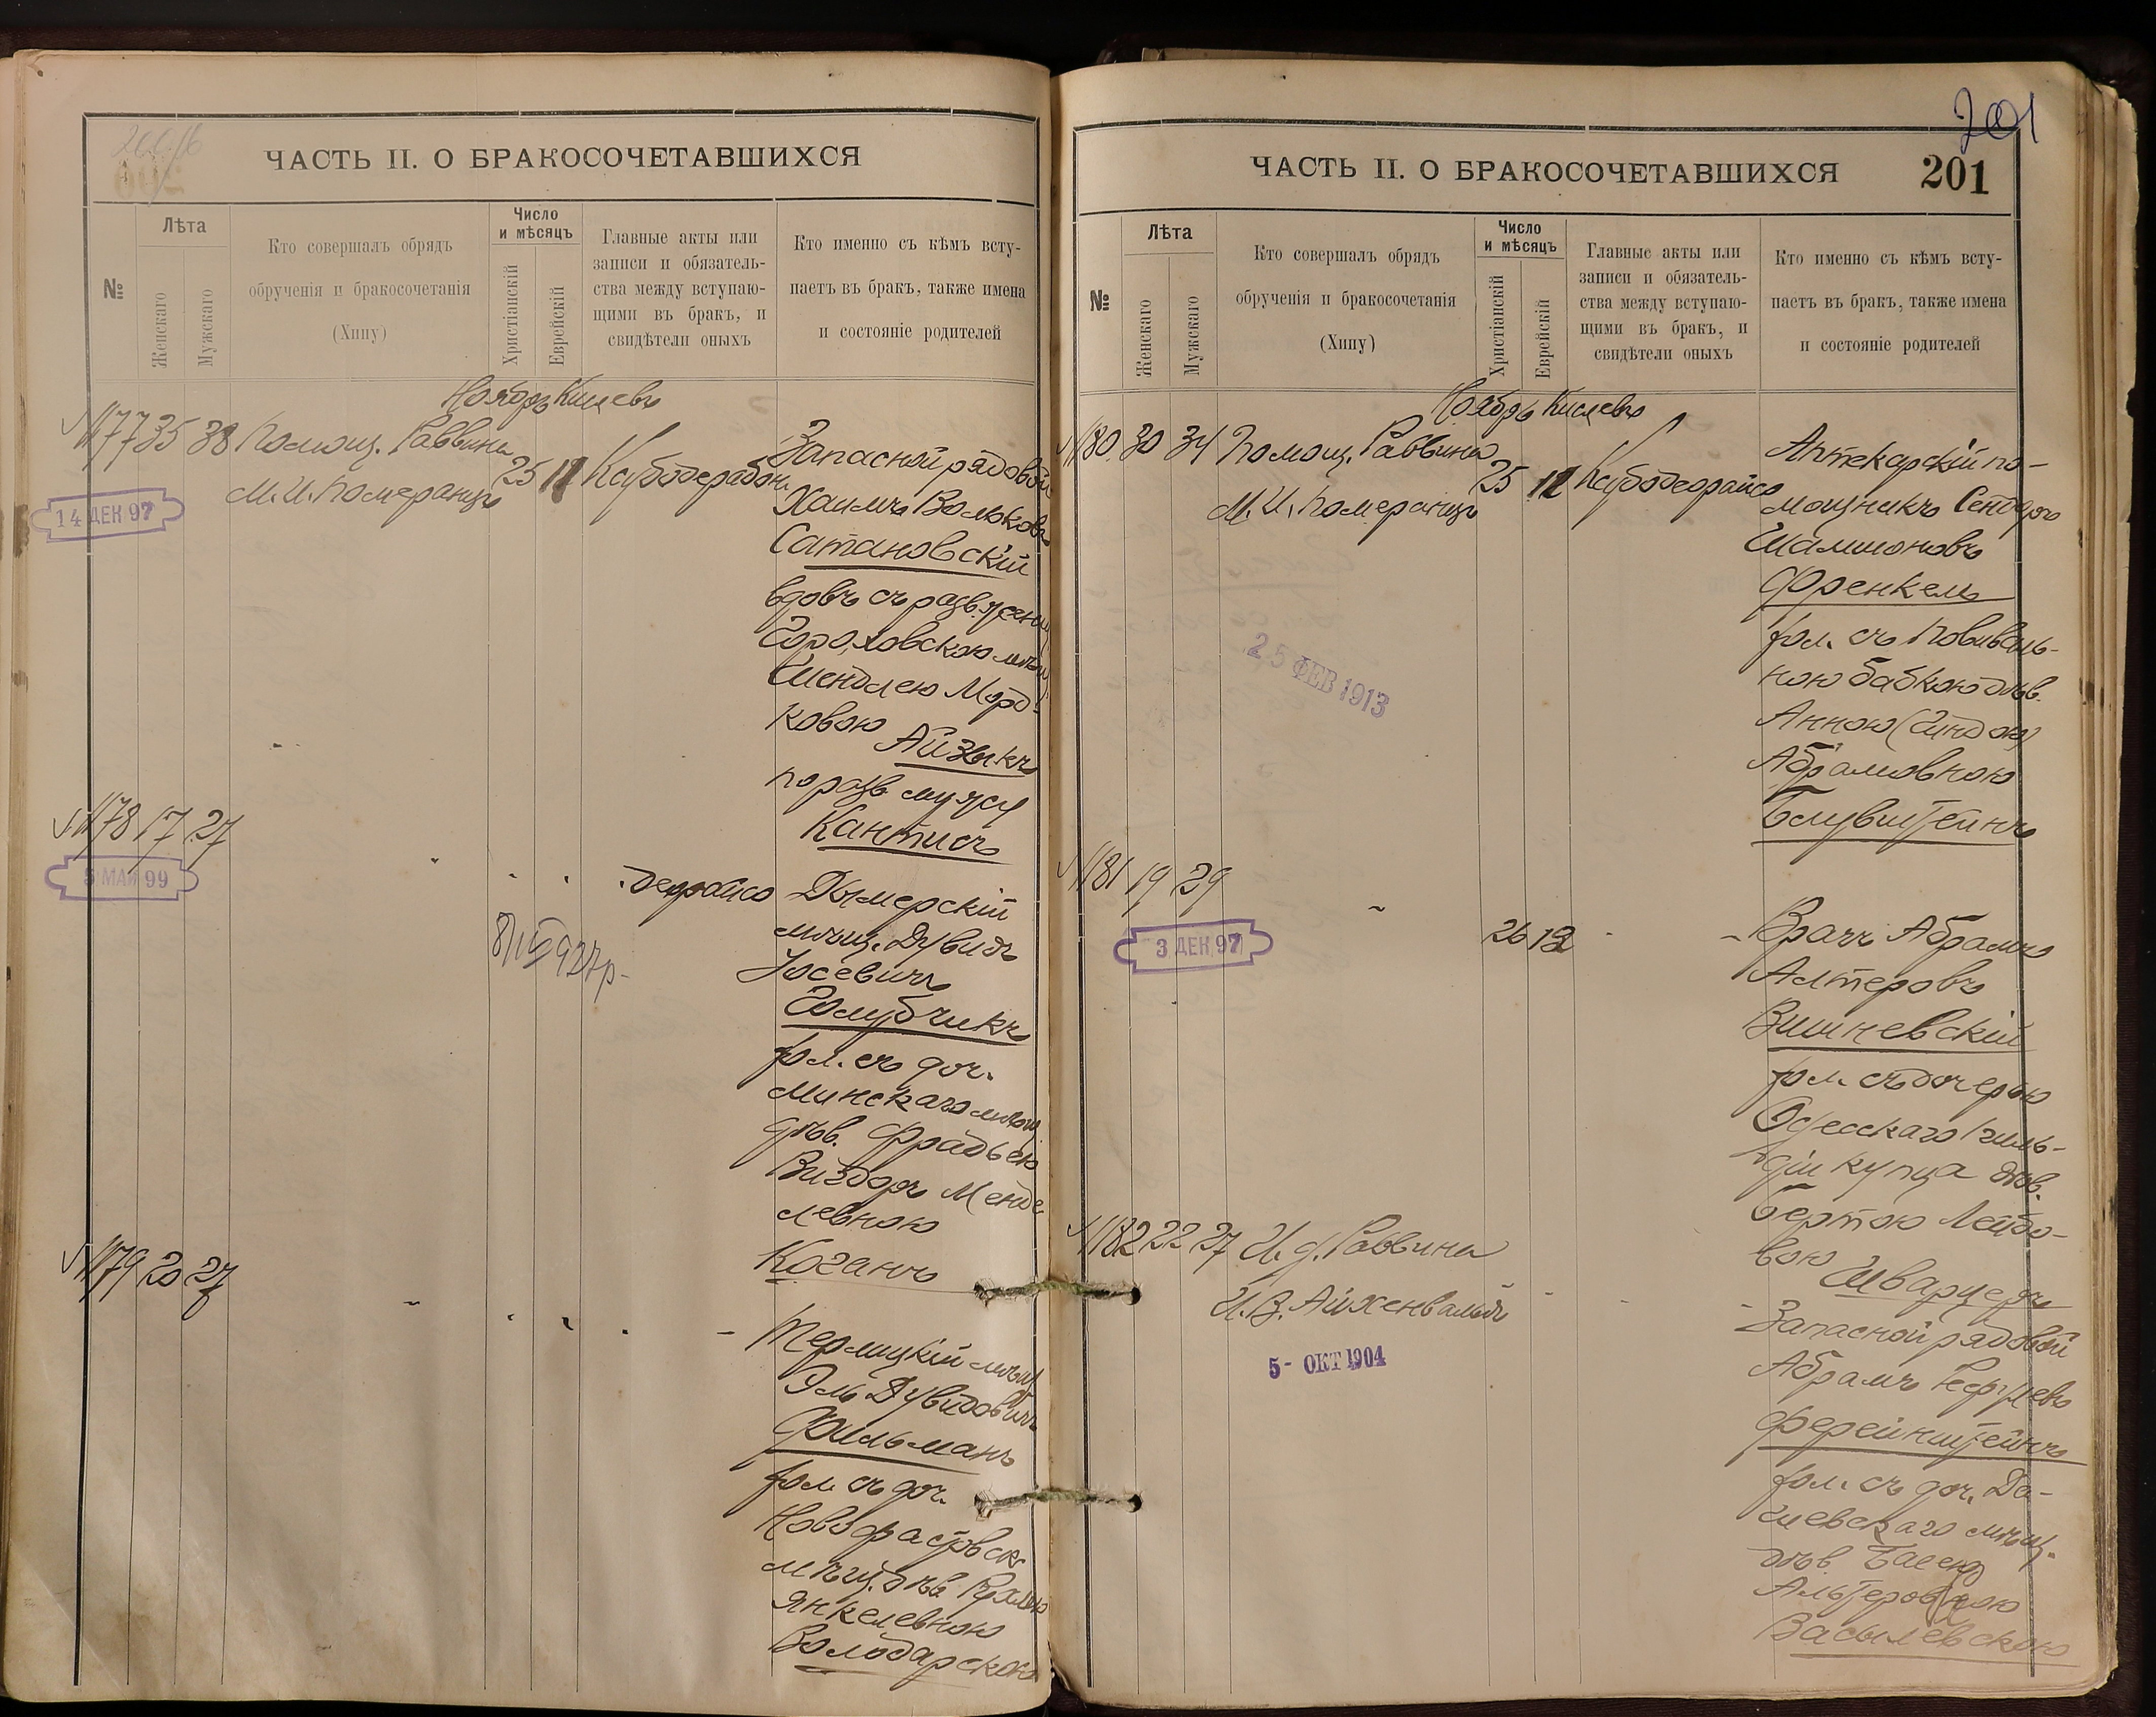 ЧАСТЬ II. О БРАКОСОЧЕТАВШИХСЯ
№
Лѣта
Женскаго
Мужскаго
Кто совершалъ обрядъ
обрученія и бракосочетанія
(Хипу)
Число
и мѣсяцъ
Христіанскій
Еврейскій
Главные акты или
записи и обязатель-
ства между вступаю-
щими въ бракъ, и
свидѣтели оныхъ
Кто именно съ кѣмъ всту-
паетъ въ бракъ, также имена
и состояніе родителей
Ноябрь Кислевъ
35 38 Помощ. Раввина
М. И. Померанцъ
25 11
14 ДЕК 97
Запасной рядовой
Хаимъ Вольковъ
Сатановскій
вдовъ съ
Гороховскою
Шендлею Морд-
ковою Айзикъ
по разв мужу
Кантисъ
178 17 27
5 МАЙ 99
Дымерскій
мѣщ. Дувидъ
Іосевичъ
Голубчикъ
хол. съ доч.
Минскаго мѣщ.
дѣв. Фрадьею
Визборъ Менде
левною
Коганъ
179 20 27
Терлицкій мѣщ
Эль Дувидовичъ
Фильманъ
хол. съ доч.
мѣщ. дѣв.
Янкелевною
Володарскою
ЧАСТЬ II. О БРАКОСОЧЕТАВШИХСЯ
201
201
№
Лѣта
Женскаго
Мужскаго
Кто совершалъ обрядъ
обрученія и бракосочетанія
(Хипу)
Число
и мѣсяцъ
Христіанскій
Еврейскій
Главные акты или
записи и обязатель-
ства между вступаю-
щими въ бракъ, и
свидѣтели оныхъ
Кто именно съ кѣмъ всту-
паетъ въ бракъ, также имена
и состояніе родителей
Ноябрь Кислевъ
180 30 34 Помощ. Раввина
М. И. Померанцъ
25
Аптекарскій по-
мощникъ Сендеръ
Шамшоновъ
Френкель
хол. съ Повиваль-
ною бабкою дѣв.
Анною (Гиндою)
Абрамовною
Блувштейнъ
25 ФЕВ 1913
181 19 29
3 ДЕК 97
26
Врачъ Абрамъ
Алтеровъ
Вишневскій
хол. съ дочерью
Одесскаго 1 гиль-
діи купца дѣв.
Бертою Лейбо-
вою Шварцеръ
182 22 27 И. д. Раввина
И. В. Айхенвальдъ
5 - ОКТ 1904
Запасной рядовой
Абрамъ
Ферейнштейнъ
хол. съ доч. Да-
шевскаго мѣщ.
дѣв. Басею
Альтеровною
Васылевскою